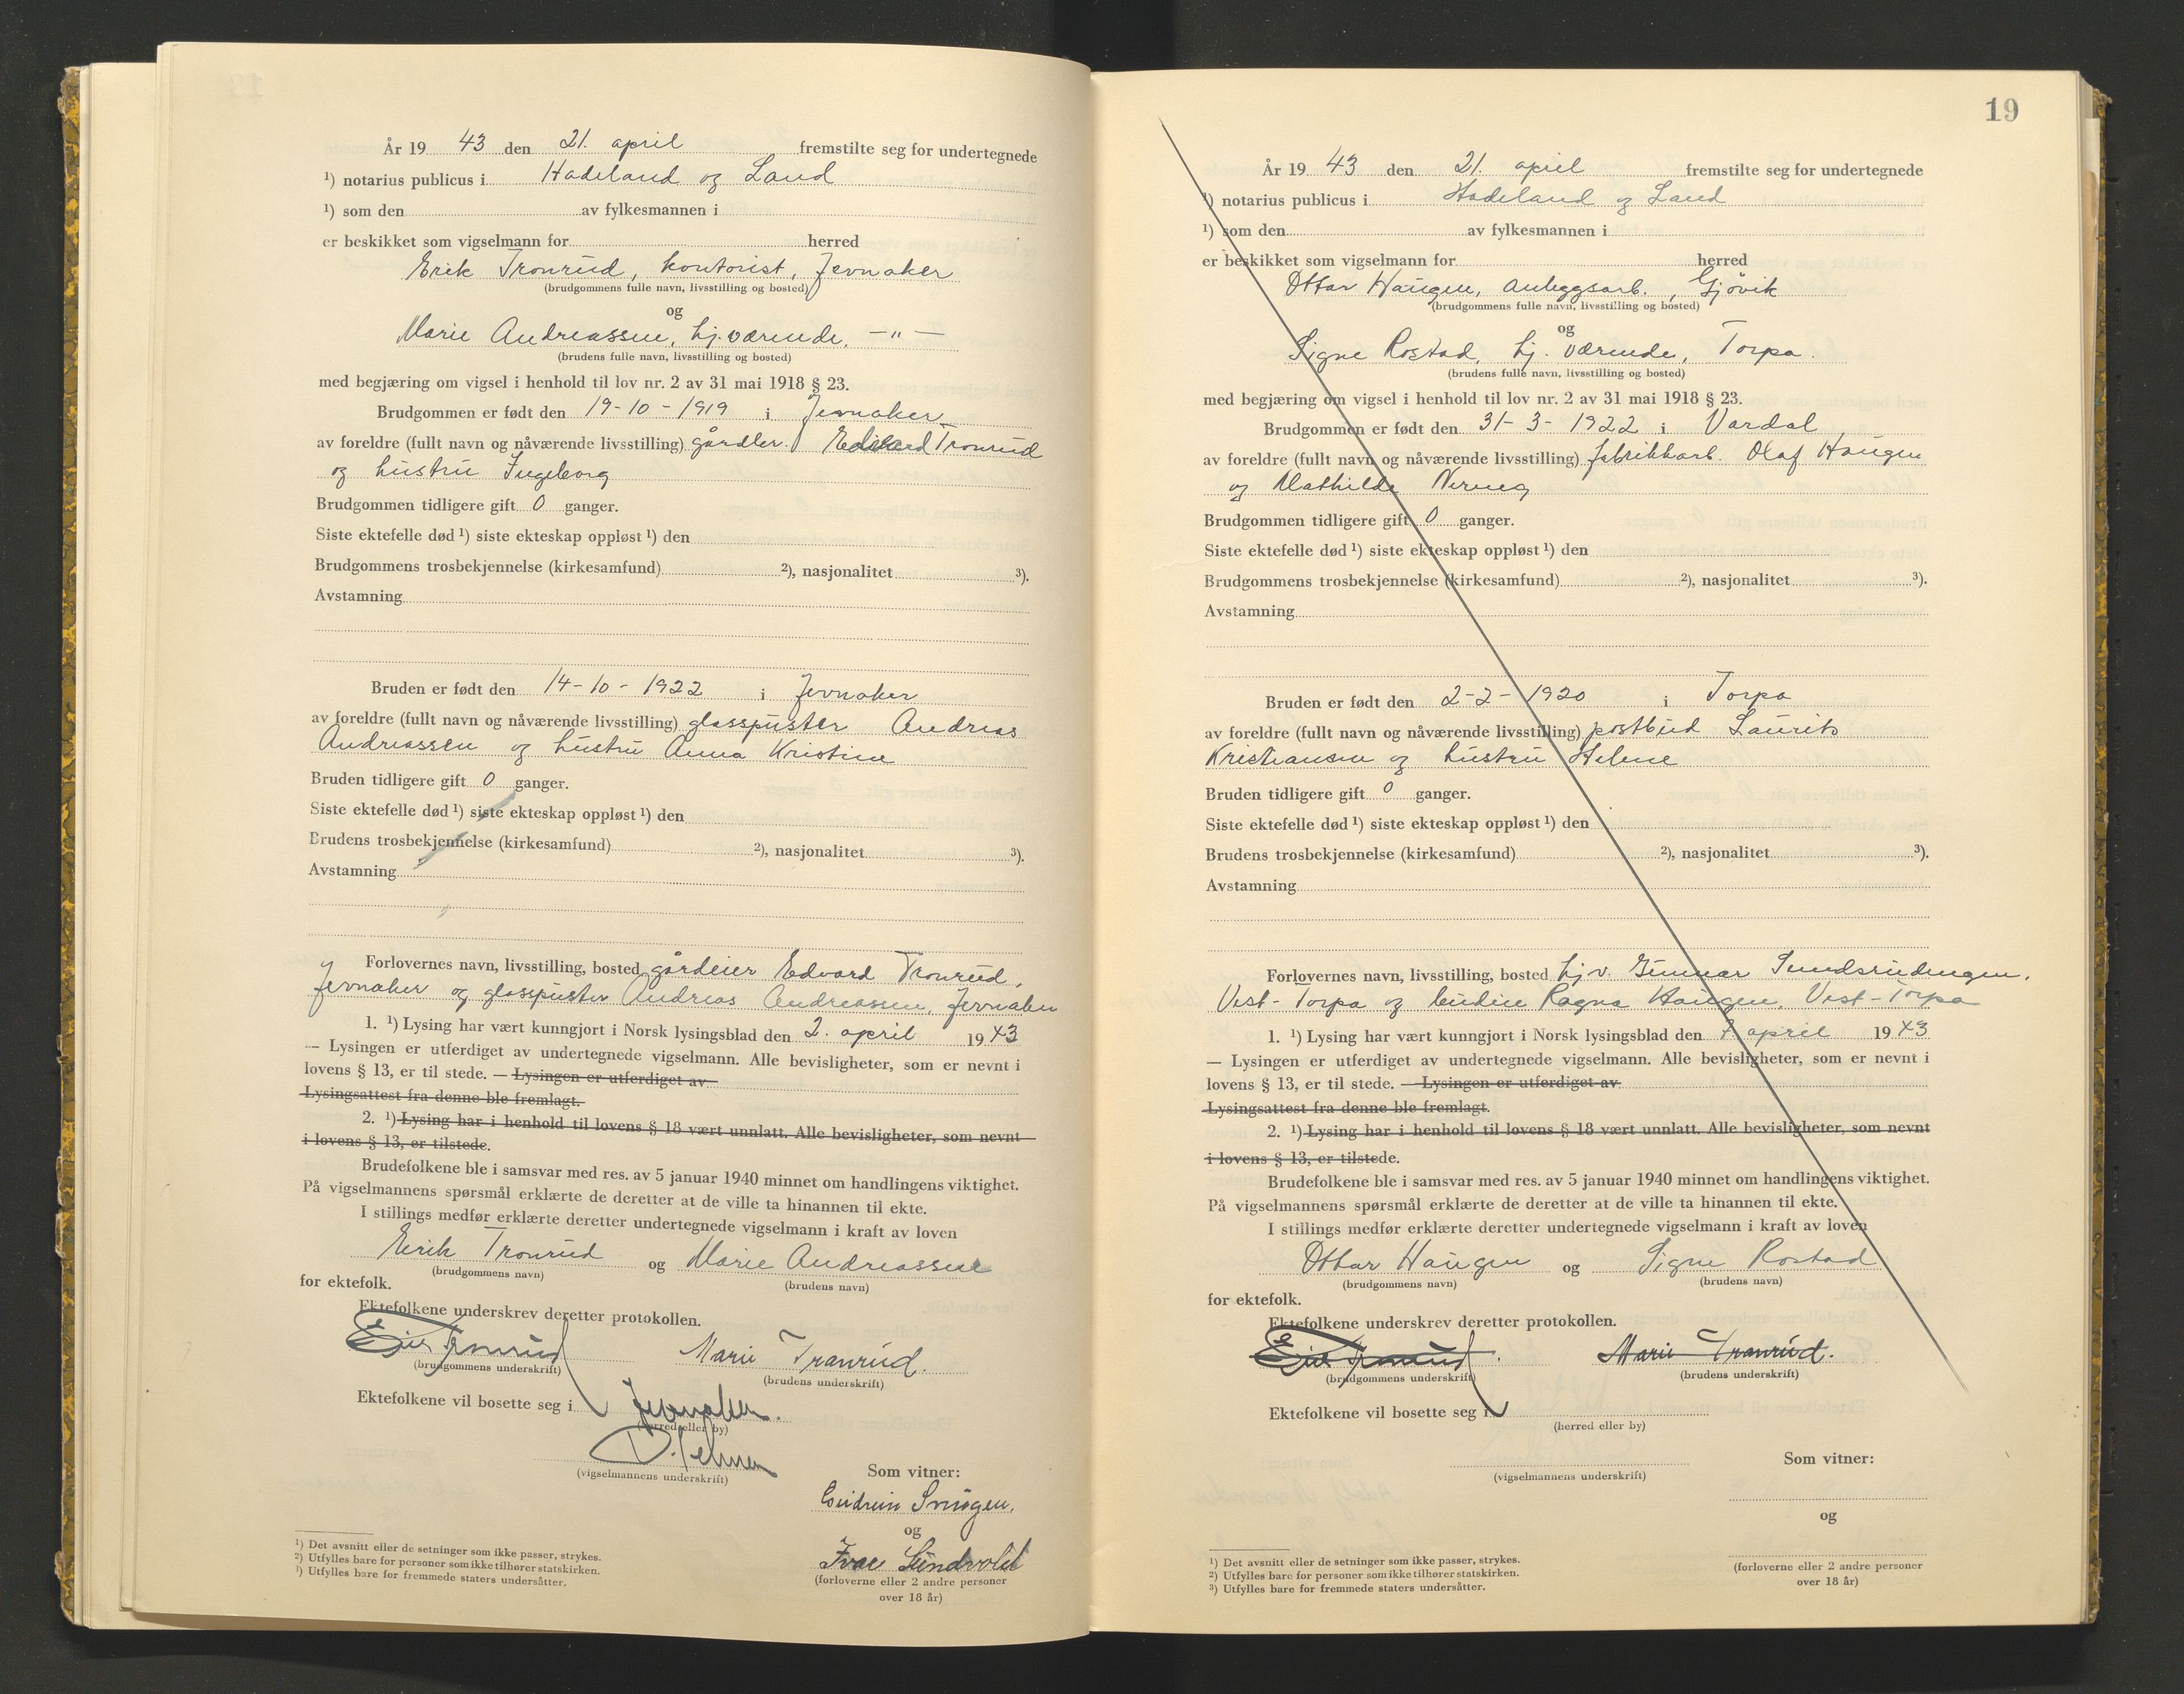 År 19 43 den 21. april fremstilte seg for undertegnede
¹) notarius publicus i Hadeland og Land
¹) som den av fylkesmannen i
er beskikket som vigselmann for herred
Erik Tronrud, kontorist, Jevnaker
(brudgommens fulle navn, livsstilling og bosted)
og
Marie Andreassen, hj.værende, —"—
(brudens fulle navn, livsstilling og bosted)
med begjæring om vigsel i henhold til lov nr. 2 av 31 mai 1918 § 23.
Brudgommen er født den 19-10-1919 i Jevnaker
av foreldre (fullt navn og nåværende livsstilling) gårdbr. Edvard Tronrud
og hustru Ingeborg
Brudgommen tidligere gift 0 ganger.
Siste ektefelle død ¹) siste ekteskap oppløst ¹) den
Brudgommens trosbekjennelse (kirkesamfund) ²), nasjonalitet ³).
Avstamning
Bruden er født den 14-10-1922 i Jevnaker
av foreldre (fullt navn og nåværende livsstilling) glasspuster Andreas
Andreassen og hustru Anna Kristine
Bruden tidligere gift 0 ganger.
Siste ektefelle død ¹) siste ekteskap oppløst ¹) den
Brudens trosbekjennelse (kirkesamfund) ²), nasjonalitet ³).
Avstamning
Forlovernes navn, livsstilling, bosted gårdeier Edvard Tronrud,
Jevnaker og glasspuster Andreas Andreassen, Jevnaker
1. ¹) Lysing har vært kunngjort i Norsk lysingsblad den 2. april 1943
— Lysingen er utferdiget av undertegnede vigselmann. Alle bevisligheter, som er nevnt i
lovens § 13, er til stede. — Lysingen er utferdiget av
Lysingsattest fra denne ble fremlagt.
2. ¹) Lysing har i henhold til lovens § 18 vært unnlatt. Alle bevisligheter, som nevnt
i lovens § 13, er tilstede.
Brudefolkene ble i samsvar med res. av 5 januar 1940 minnet om handlingens viktighet.
På vigselmannens spørsmål erklærte de deretter at de ville ta hinannen til ekte.
I stillings medfør erklærte deretter undertegnede vigselmann i kraft av loven
Erik Tronrud og Marie Andreassen
(brudgommens navn) (brudens navn)
for ektefolk.
Ektefolkene underskrev deretter protokollen.
Erik Tronrud Marie Tronrud.
(brudgommens underskrift) (brudens underskrift)
Ektefolkene vil bosette seg i Jevnaker.
(herred eller by)
(vigselmannens underskrift)
Som vitner:
Gudrun
og
Ivar Sundvold
(forloverne eller 2 andre personer
over 18 år)
¹) Det avsnitt eller de setninger som ikke passer, strykes.
²) Utfylles bare for personer som ikke tilhører statskirken.
³) Utfylles bare for fremmede staters undersåtter.
19
År 19 43 den 21. april fremstilte seg for undertegnede
¹) notarius publicus i Hadeland og Land
¹) som den av fylkesmannen i
er beskikket som vigselmann for herred
Ottar Haugen, anleggsarb., Gjøvik
(brudgommens fulle navn, livsstilling og bosted)
og
Signe Rostad, hj. værende, Torpa.
(brudens fulle navn, livsstilling og bosted)
med begjæring om vigsel i henhold til lov nr. 2 av 31 mai 1918 § 23.
Brudgommen er født den 31-3-1922 i Vardal
av foreldre (fullt navn og nåværende livsstilling) fabrikkarb. Olaf Haugen
og Mathilde
Brudgommen tidligere gift 0 ganger.
Siste ektefelle død ¹) siste ekteskap oppløst ¹) den
Brudgommens trosbekjennelse (kirkesamfund) ²), nasjonalitet ³).
Avstamning
Bruden er født den 2-2-1920 i Torpa
av foreldre (fullt navn og nåværende livsstilling) postbud Laurits
Kristiansen og hustru Helene
Bruden tidligere gift 0 ganger.
Siste ektefelle død ¹) siste ekteskap oppløst ¹) den
Brudens trosbekjennelse (kirkesamfund) ²), nasjonalitet ³).
Avstamning
Forlovernes navn, livsstilling, bosted hj.v. Gunnar
Vest-Torpa og Ragna Haugen, Vest-Torpa
1. ¹) Lysing har vært kunngjort i Norsk lysingsblad den 7. april 1943
— Lysingen er utferdiget av undertegnede vigselmann. Alle bevisligheter, som er nevnt i
lovens § 13, er til stede. — Lysingen er utferdiget av
Lysingsattest fra denne ble fremlagt.
2. ¹) Lysing har i henhold til lovens § 18 vært unnlatt. Alle bevisligheter, som nevnt
i lovens § 13, er tilstede.
Brudefolkene ble i samsvar med res. av 5 januar 1940 minnet om handlingens viktighet.
På vigselmannens spørsmål erklærte de deretter at de ville ta hinannen til ekte.
I stillings medfør erklærte deretter undertegnede vigselmann i kraft av loven
Ottar Haugen og Signe Rostad
(brudgommens navn) (brudens navn)
for ektefolk.
Ektefolkene underskrev deretter protokollen.
Erik Tronrud. Marie Tronrud.
(brudgommens underskrift) (brudens underskrift)
Ektefolkene vil bosette seg i
(herred eller by)
Som vitner:
(vigselmannens underskrift)
og
(forloverne eller 2 andre personer
over 18 år)
¹) Det avsnitt eller de setninger som ikke passer, strykes.
²) Utfylles bare for personer som ikke tilhører statskirken.
³) Utfylles bare for fremmede staters undersåtter.